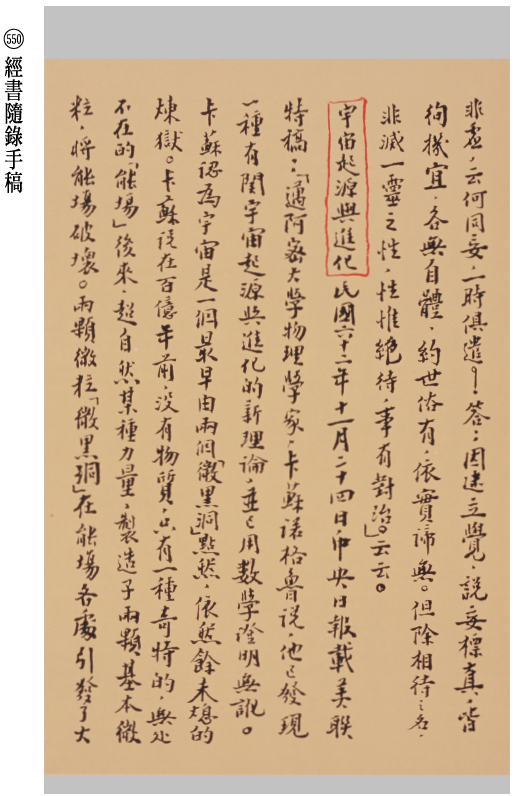 550 經書隨錄手稿
非虛，云何同妄，一時俱遣。答：因建立覺，說妄標真，皆
徇機宜，各無自體，約世俗有，依實諦無。但除相待之名，
非滅一靈之性，性惟絕待，事有對治」。云云。
宇宙起源與進化 民國六十二年十一月二十四日，中央日報載美聯
特稿：「邁阿密大學物理學家，卡蘇諾格魯說，他已發現
一種有関宇宙起源與進化的新理論，並已用數學證明無訛。
卡蘇認為宇宙是一個最早由兩個「微黑洞」點然，依然餘未熄的
煉獄。卡蘇說在百億年前，沒有物質，只有一種奇特的，無處
不在的「能場」後來，超自然某種力量，製造了兩顆基本微
粒，將能場破壞。兩顆微粒「微黑洞」在能場各處引發了大